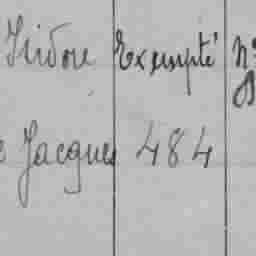 Isidore Exempté N°
Jacques 484